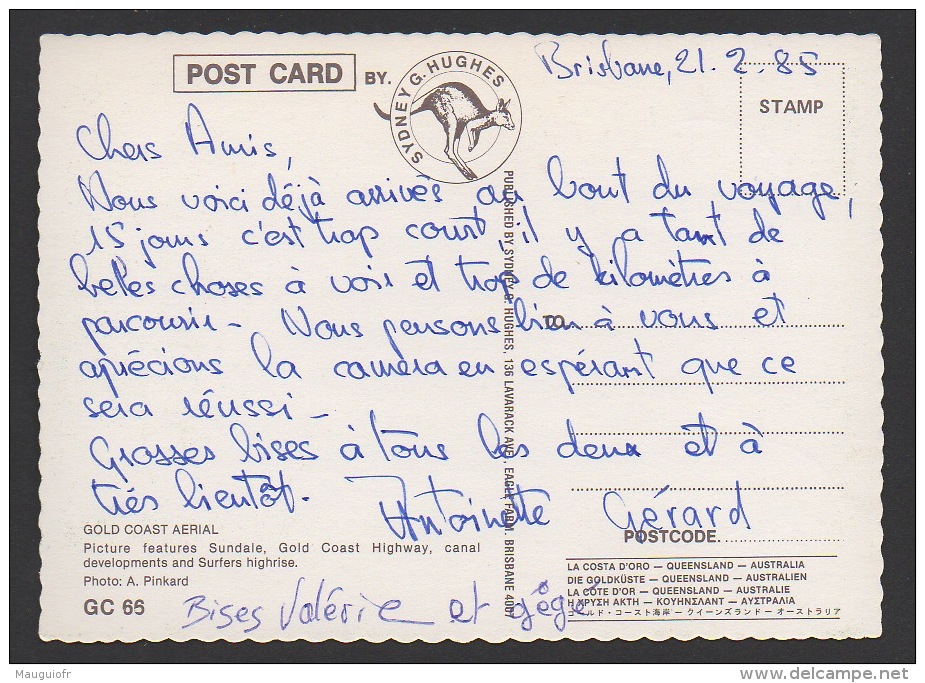 POST CARD BY.
SYDNEY G. HUGHES
Brisbane, 21.2.85
STAMP
Chers Amis,
Nous voici déjà arrivés au bout du voyage,
15 jours c'est trop court, il y a tant de
belles choses à voir et trop de kilomètres à
parcourir - Nous pensons bien à vous et
aprécions la camera en espérant que ce
sera réussi -
Grosses bises à tous les deux et à
très bientôt. Antoinette Gérard
TO
PUBLISHED BY SYDNEY G. HUGHES, 136 LAVARACK AVE., EAGLE FARM, BRISBANE 4007
POSTCODE
GOLD COAST AERIAL
Picture features Sundale, Gold Coast Highway, canal
developments and Surfers highrise.
Photo: A. Pinkard
GC 66
Bises Valérie et gégé
LA COSTA D'ORO — QUEENSLAND — AUSTRALIA
DIE GOLDKÜSTE — QUEENSLAND — AUSTRALIEN
LA CÔTE D'OR — QUEENSLAND — AUSTRALIE
Η ΧΡΥΣΗ ΑΚΤΗ — ΚΟΥΗΝΣΛΑΝΤ — ΑΥΣΤΡΑΛΙΑ
ゴールド・コースト海岸 — クイーンズランド — オーストラリア
Mauguiofr
www.delcampe.net